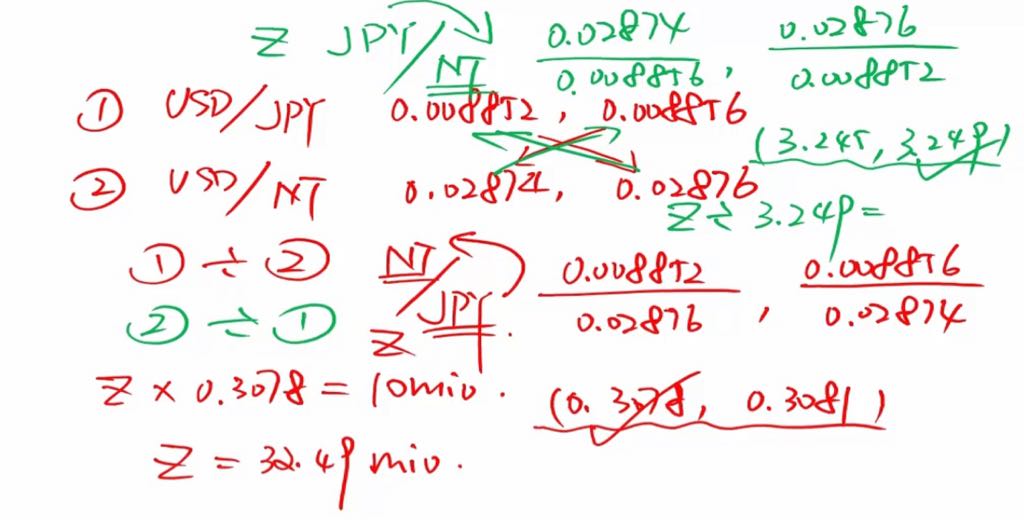 Z JPY/NT 0.02874/0.008856, 0.02876/0.008852
① USD/JPY 0.008852, 0.008856
(3.245, 3.249)
② USD/NT 0.02874, 0.02876
Z ÷ 3.249 =
① ÷ ② NT/JPY 0.008852/0.02876, 0.008856/0.02874
② ÷ ① Z
Z × 0.3078 = 10 mio.
(0.3078, 0.3081)
Z = 32.49 mio.